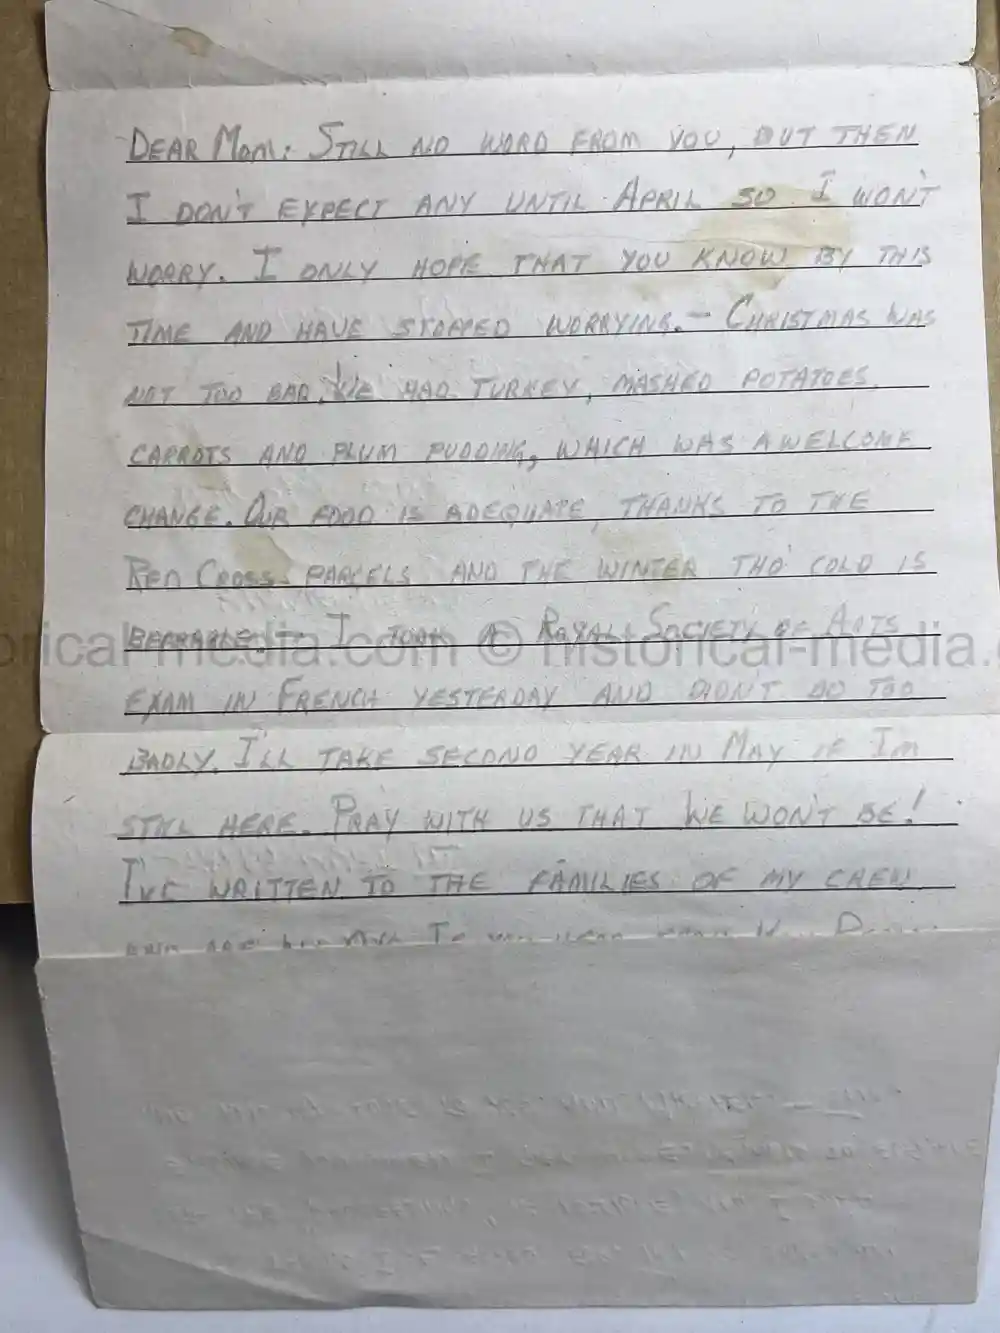 DEAR MOM: STILL NO WORD FROM YOU, BUT THEN
I DON'T EXPECT ANY UNTIL APRIL SO I WON'T
WORRY. I ONLY HOPE THAT YOU KNOW BY THIS
TIME AND HAVE STOPPED WORRYING. — CHRISTMAS WAS
NOT TOO BAD. WE HAD TURKEY, MASHED POTATOES,
CARROTS AND PLUM PUDDING, WHICH WAS A WELCOME
CHANGE. OUR FOOD IS ADEQUATE, THANKS TO THE
RED CROSS PARCELS AND THE WINTER THO' COLD IS
BEARABLE. — I TOOK A ROYAL SOCIETY OF ARTS
historical-media.com © historical-media.
EXAM IN FRENCH YESTERDAY AND DIDN'T DO TOO
BADLY. I'LL TAKE SECOND YEAR IN MAY IF I'M
STILL HERE. PRAY WITH US THAT WE WON'T BE!
I'VE WRITTEN TO THE FAMILIES OF MY CREW